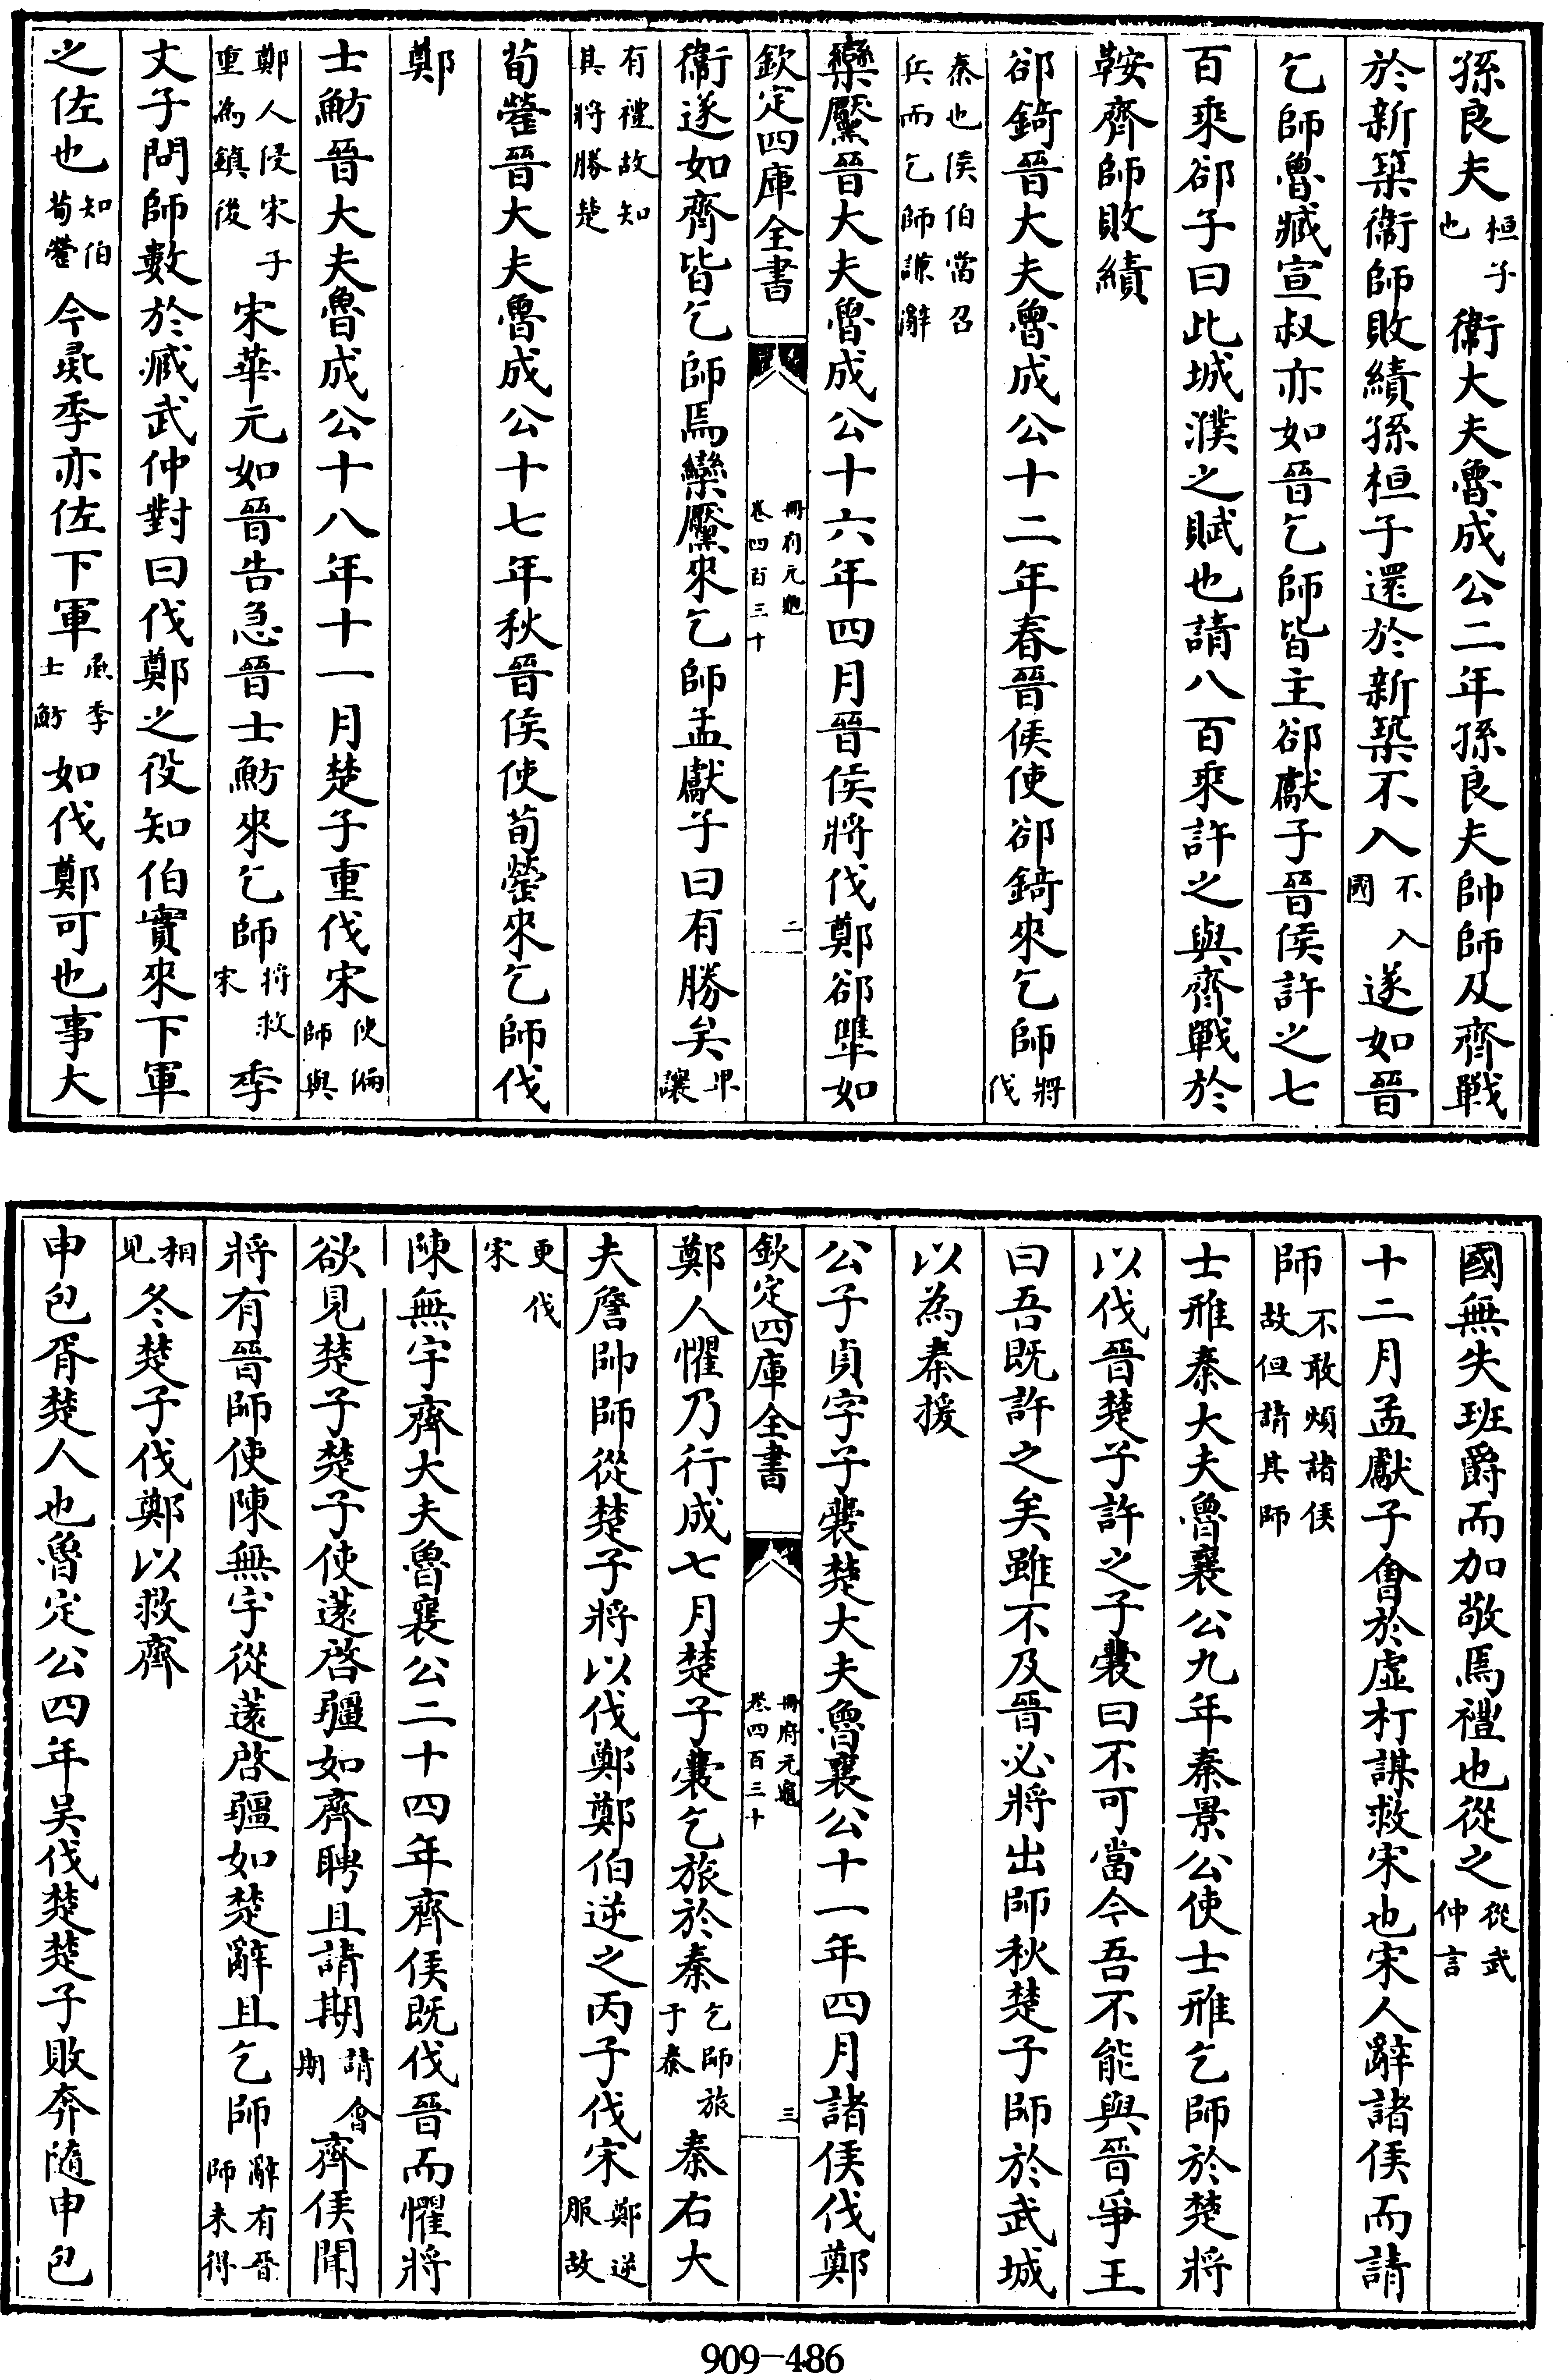 孫良夫桓子也衞大夫魯成公二年孫良夫帥師及齊戰
於新築衞師敗績孫桓子還於新築不入不入國遂如晉
乞師魯臧宣叔亦如晉乞師皆主郤獻子晉侯許之七
百乘郤子曰此城濮之賦也請八百乘許之與齊戰於
鞍齊師敗績
郤錡晉大夫魯成公十二年春晉侯使郤錡來乞師將伐
秦也侯伯當召兵而乞師謙辭
欒黶晉大夫魯成公十六年四月晉侯將伐鄭郤犫如
欽定四庫全書
冊府元龜
卷四百三十
二
衞遂如齊皆乞師焉欒黶來乞師孟獻子曰有勝矣卑讓
有禮故知其將勝楚
荀罃晉大夫魯成公十七年秋晉侯使荀罃來乞師伐
鄭
士魴晉大夫魯成公十八年十一月楚子重伐宋使偏師與
鄭人侵宋子重為鎮後宋華元如晉告急晉士魴來乞師將救宋季
文子問師數於臧武仲對曰伐鄭之役知伯實來下軍
之佐也知伯荀罃今彘季亦佐下軍彘季士魴如伐鄭可也事大
國無失班爵而加敬焉禮也從之從武仲言
十二月孟獻子會於虛朾謀救宋也宋人辭諸侯而請
師不敢煩諸侯故但請其師
士雅秦大夫魯襄公九年秦景公使士雅乞師於楚將
以伐晉楚子許之子囊曰不可當今吾不能與晉爭王
曰吾既許之矣雖不及晉必將出師秋楚子師於武城
以為秦援
公子貞字子囊楚大夫魯襄公十一年四月諸侯伐鄭
欽定四庫全書
冊府元龜
卷四百三十
三
鄭人懼乃行成七月楚子囊乞旅於秦乞師旅于秦秦右大
夫詹帥師從楚子將以伐鄭鄭伯逆之丙子伐宋鄭逆服故
更伐宋
陳無宇齊大夫魯襄公二十四年齊侯既伐晉而懼將
欲見楚子楚子使薳啓疆如齊聘且請期請會期齊侯聞
將有晉師使陳無宇從薳啓疆如楚辭且乞師辭有晉師未得
相見冬楚子伐鄭以救齊
申包胥楚人也魯定公四年吳伐楚楚子敗奔隨申包
909-486